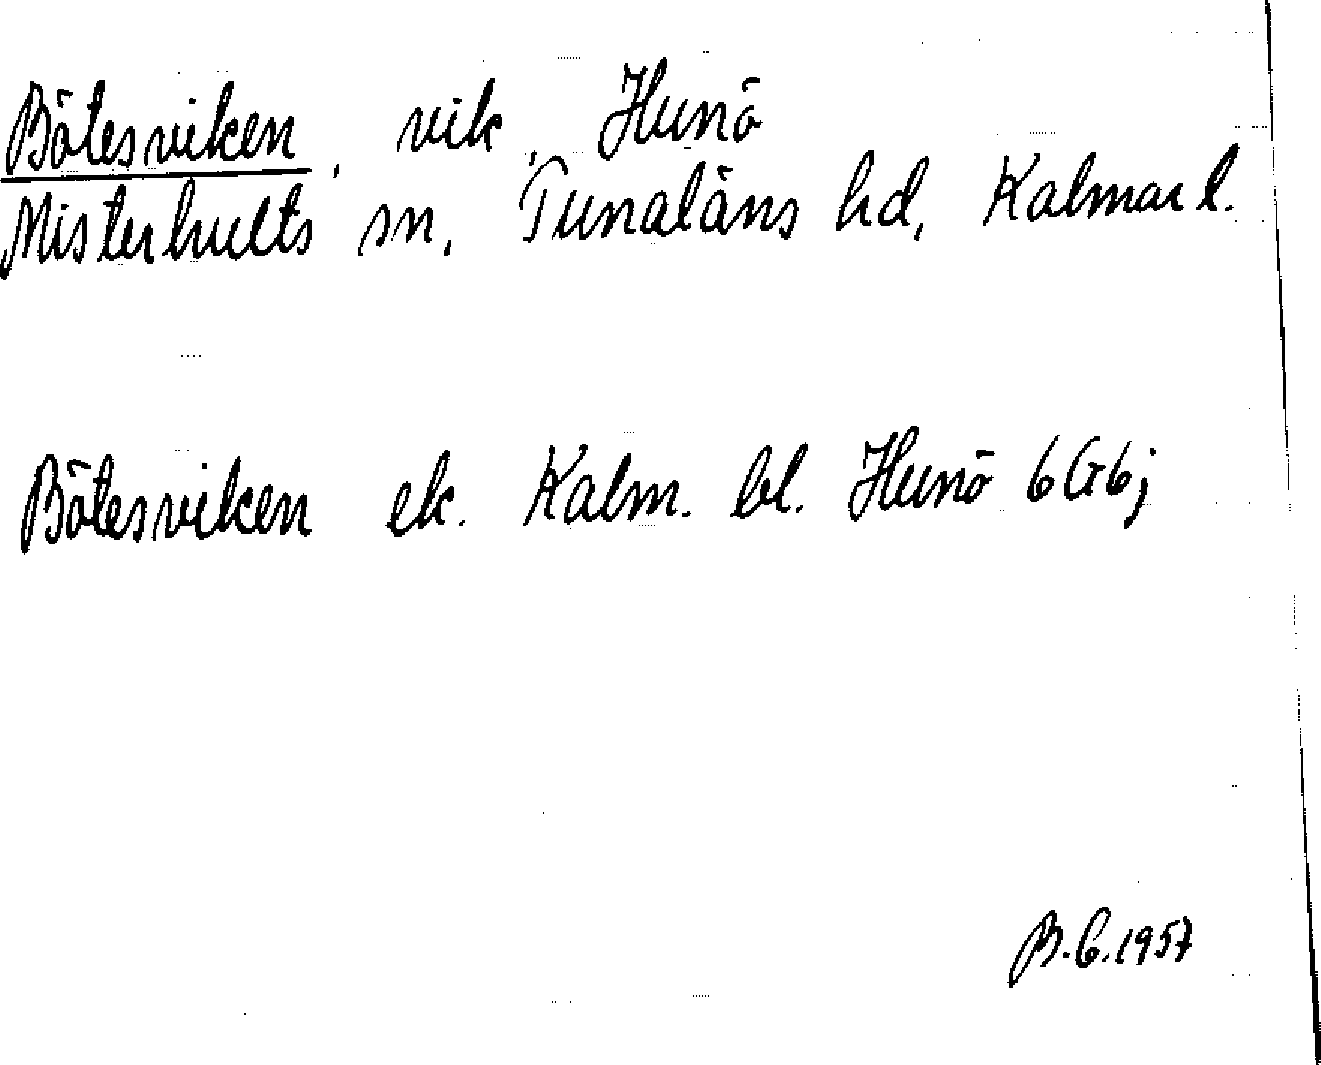 Bötesviken, vik, Hunö
Misterhults sn, Tunaläns hd, Kalmar l.
Bötesviken ek. Kalm. bl. Hunö 6G6j
B.C.1957